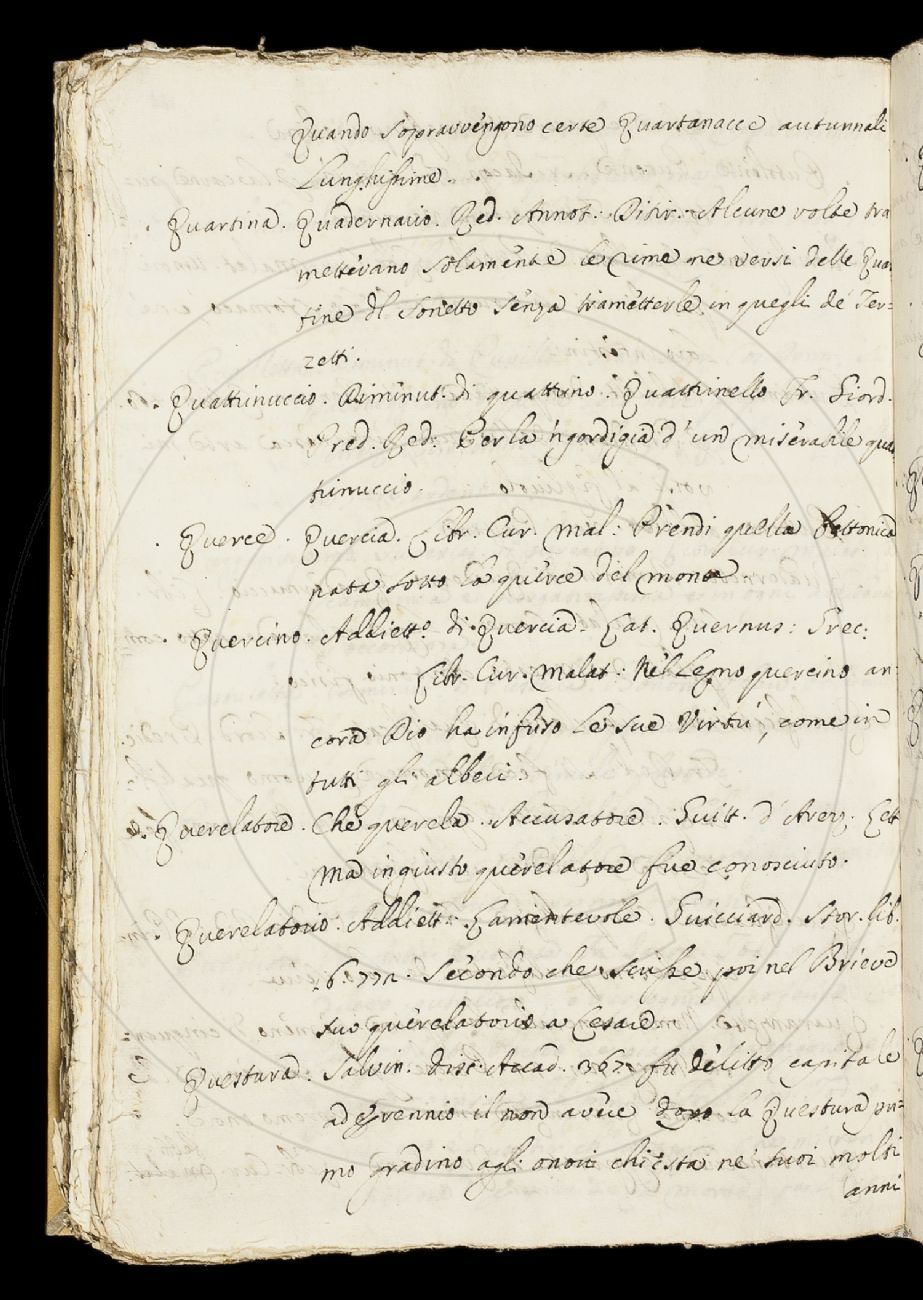 Quando sopravvengono certe Quartanacce autunnali
Lunghissime.
Quartina. Quadernario. Red. Annot: Ditir: Alcune volte tra
mettevano solamente le rime ne versi delle Quar
tine del Sonetto senza tramètterle in quegli de' Ter=
zetti.
Quattrinuccio. Diminut. di quattrino. Quattrinello Fr. Giord.
Pred. Red: Per la 'ngordigia d'un miserabile quat
trinuccio.
Querce. Quercia. Libr. Cur. mal: Prendi quella Bettonica
nata sotto la querce del monte
Quercino. Addiett.º di Quercia. Lat. Quernus: Grec:
Libr. Cur. malat: Nel Legno quercino an
cora Dio ha infuso le sue Virtù, come in
tutti gli alberi
Querelatore. Che querela. Accusatore. Guitt. d'Arez. Lett
ma ingiusto querelatore fue conosciuto.
Querelatorio. Addiett: Lamentevole. Guicciard. Stor. lib.
6. 772. Secondo che scrisse poi nel Brieve
suo querelatorio a Cesare
Questura. Salvin. disc. Accad. 367. fu delitto capitale
ad Erennio il non avere dopo la Questura pri=
mo gradino agli onori chiesta ne' suoi molti
anni